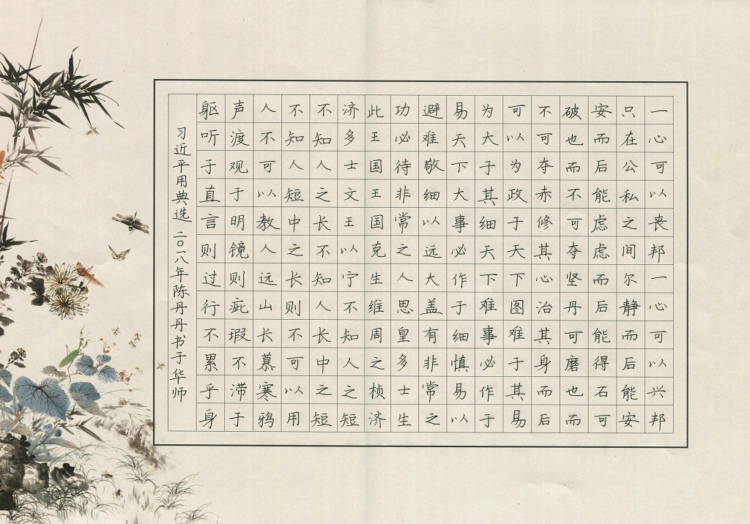 一心可以丧邦一心可以兴邦
只在公私之间尔静而后能安
安而后能虑虑而后能得石可
破也而不可夺坚丹可磨也而
不可夺赤修其心治其身而后
可以为政于天下图难于其易
为大于其细天下难事必作于
易天下大事必作于细慎易以
避难敬细以远大盖有非常之
功必待非常之人思皇多士生
此王国王国克生维周之桢济
济多士文王以宁不知人之短
不知人之长不知人长中之短
不知人短中之长则不可以用
人不可以教人远山长慕寒鸦
声渡观于明镜则疵瑕不滞于
躯听于直言则过行不累乎身
习近平用典选 二〇一八年陈丹丹书于华师